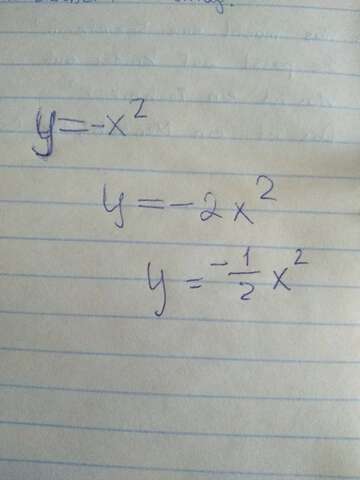 y=-x²
y=-2x²
y=-1/2 x²